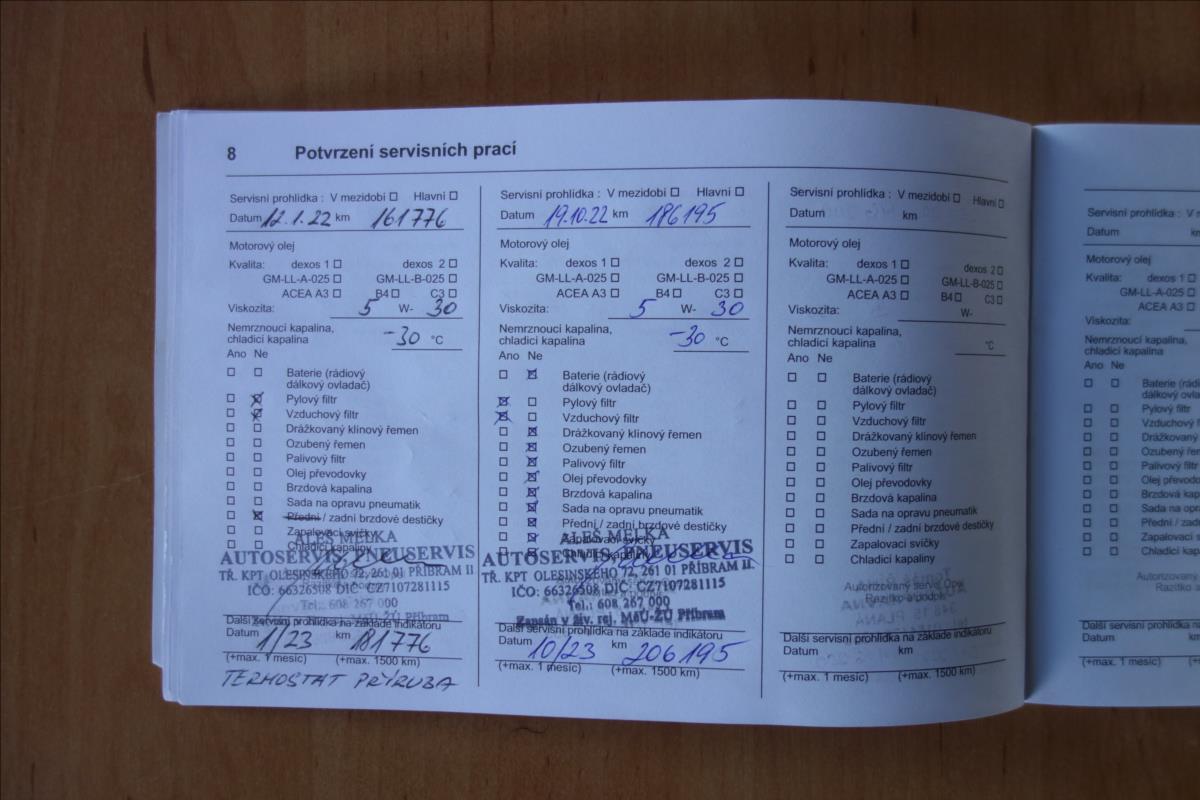 8 Potvrzení servisních prací
Servisní prohlídka : V mezidobí □ Hlavní □
Datum 12.1.22 km 161776
Motorový olej
Kvalita: dexos 1 □ dexos 2 □
GM-LL-A-025 □ GM-LL-B-025 □
ACEA A3 □ B4 □ C3 □
Viskozita: 5 W- 30
Nemrznoucí kapalina,
chladicí kapalina -30 °C
Ano Ne
□ □ Baterie (rádiový
dálkový ovladač)
□ ☒ Pylový filtr
□ ☒ Vzduchový filtr
□ □ Drážkovaný klínový řemen
□ □ Ozubený řemen
□ □ Palivový filtr
□ □ Olej převodovky
□ □ Brzdová kapalina
□ □ Sada na opravu pneumatik
□ ☒ Přední / zadní brzdové destičky
□ □ Zapalovací svíčky
□ □ Chladicí kapaliny
ALEŠ MELKA
AUTOSERVIS, PNEUSERVIS
TŘ. KPT. OLESINSKÉHO 72, 261 01 PŘÍBRAM II.
IČO: 66326508 DIČ: CZ7107281115
Tel.: 608 267 000
MěÚ-ŽÚ Příbram
Další servisní prohlídka na základě indikátoru
Datum 1/23 km 181776
(+max. 1 měsíc) (+max. 1500 km)
TERMOSTAT PŘÍRUBA
Servisní prohlídka : V mezidobí □ Hlavní □
Datum 19.10.22 km 186195
Motorový olej
Kvalita: dexos 1 □ dexos 2 □
GM-LL-A-025 □ GM-LL-B-025 □
ACEA A3 □ B4 □ C3 □
Viskozita: 5 W- 30
Nemrznoucí kapalina,
chladicí kapalina -30 °C
Ano Ne
□ ☒ Baterie (rádiový
dálkový ovladač)
☒ □ Pylový filtr
☒ □ Vzduchový filtr
□ ☒ Drážkovaný klínový řemen
□ ☒ Ozubený řemen
□ ☒ Palivový filtr
□ ☒ Olej převodovky
□ ☒ Brzdová kapalina
□ ☒ Sada na opravu pneumatik
□ ☒ Přední / zadní brzdové destičky
□ ☒ Zapalovací svíčky
□ ☒ Chladicí kapaliny
ALEŠ MELKA
AUTOSERVIS, PNEUSERVIS
TŘ. KPT. OLESINSKÉHO 72, 261 01 PŘÍBRAM II.
IČO: 66326508 DIČ: CZ7107281115
Tel.: 608 267 000
Zapsán v živ. rej. MěÚ-ŽÚ Příbram
Další servisní prohlídka na základě indikátoru
Datum 10/23 km 206195
(+max. 1 měsíc) (+max. 1500 km)
Servisní prohlídka : V mezidobí □ Hlavní □
Datum km
Motorový olej
Kvalita: dexos 1 □ dexos 2 □
GM-LL-A-025 □ GM-LL-B-025 □
ACEA A3 □ B4 □ C3 □
Viskozita: W-
Nemrznoucí kapalina,
chladicí kapalina °C
Ano Ne
□ □ Baterie (rádiový
dálkový ovladač)
□ □ Pylový filtr
□ □ Vzduchový filtr
□ □ Drážkovaný klínový řemen
□ □ Ozubený řemen
□ □ Palivový filtr
□ □ Olej převodovky
□ □ Brzdová kapalina
□ □ Sada na opravu pneumatik
□ □ Přední / zadní brzdové destičky
□ □ Zapalovací svíčky
□ □ Chladicí kapaliny
Autorizovaný servis Opel
Razítko a podpis
Další servisní prohlídka na základě indikátoru
Datum km
(+max. 1 měsíc) (+max. 1500 km)
Servisní prohlídka : V
Datum km
Motorový olej
Kvalita: dexos 1 □
GM-LL-A-025 □
ACEA A3 □
Viskozita:
Nemrznoucí kapalina,
chladicí kapalina
Ano Ne
□ □ Baterie
dálkový
□ □ Pylový filtr
□ □ Vzduchový
□ □ Drážkovaný
□ □ Ozubený
□ □ Palivový
□ □ Olej
□ □ Brzdová
□ □ Sada na
□ □ Přední
□ □ Zapalovací
□ □ Chladicí
Autorizovaný
Razítko
Další servisní prohlídka na
Datum km
(+max. 1 měsíc)